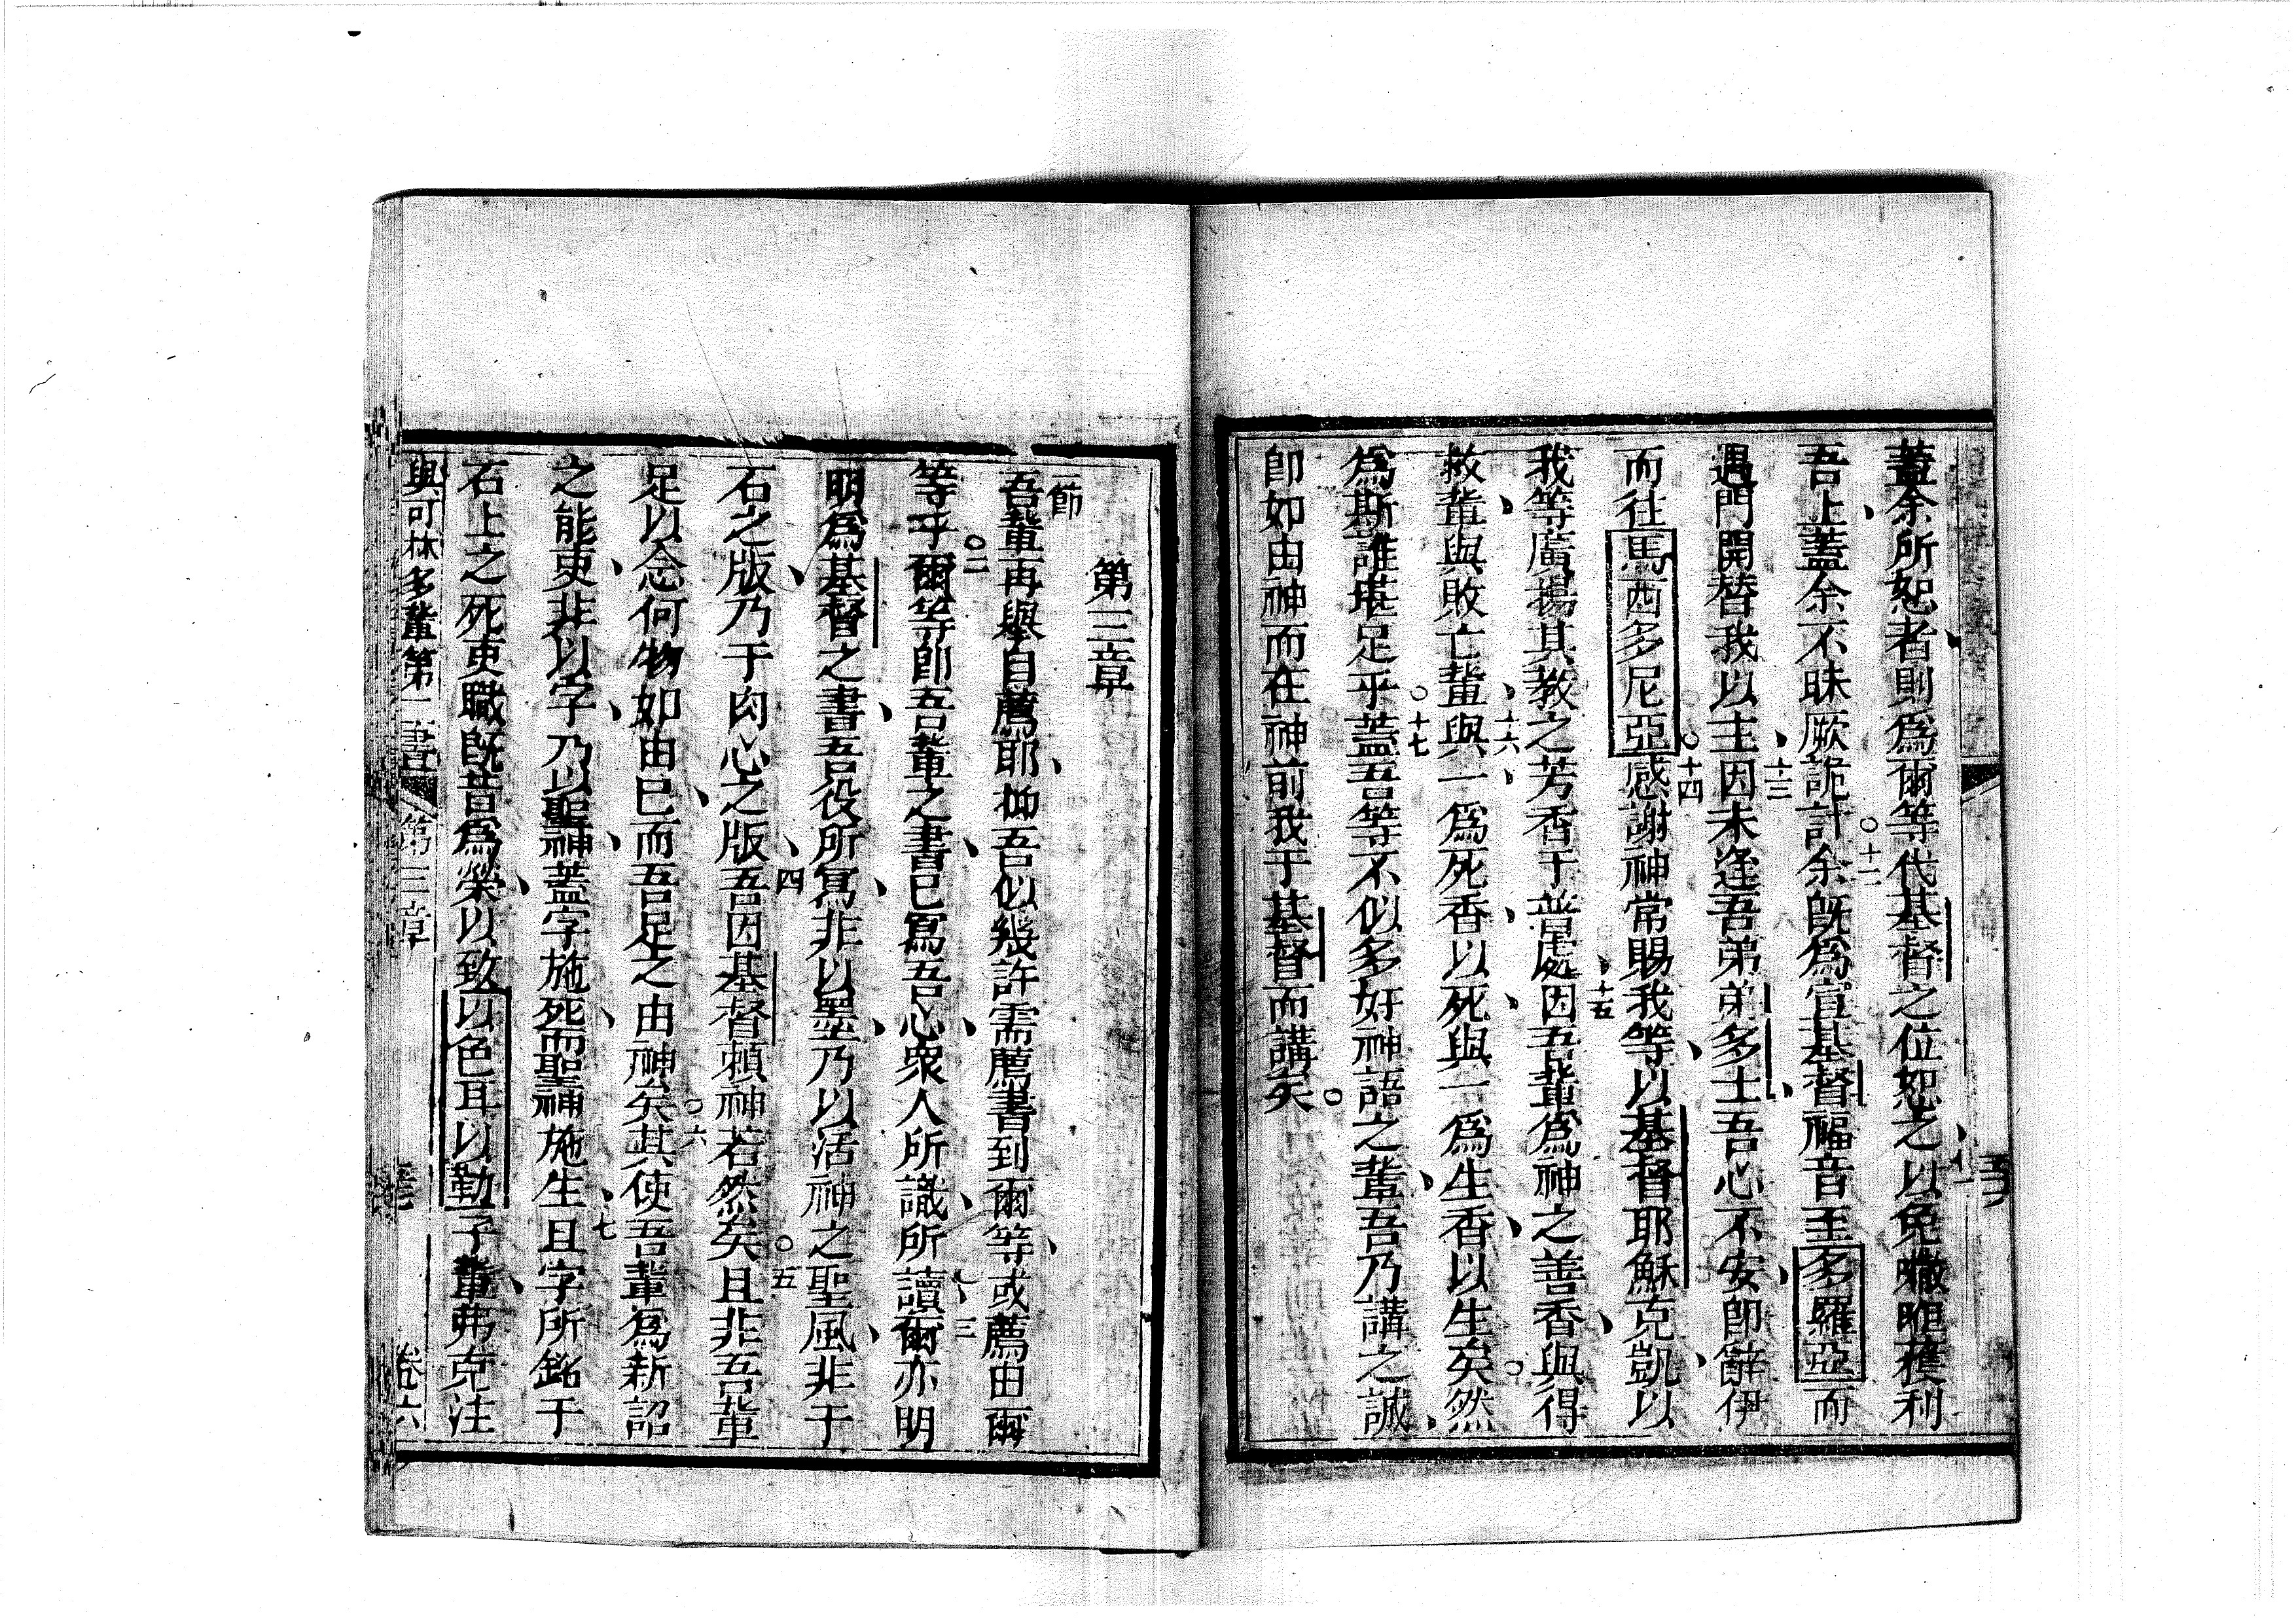 蓋余所恕者則爲爾等代基督之位恕之十一以免
吾上蓋余不昧厥詭計十二余既爲宣基督福音至多羅亞而
遇門開替我以主十三因未逢吾弟弟多士吾心不安卽辭伊
而往馬西多尼亞十四感謝神常賜我等以基督耶穌克凱以
我等廣揚其教之芳香于普處十五因吾輩爲神之善香與得
救輩與敗亡輩與十六一爲死香以死與一爲生香以生矣然
爲斯誰堪足乎十七蓋吾等不似多好神語之輩吾乃講之誠
卽如由神而在神前我于基督而講矣
第三章
節
吾輩再舉自薦耶抑吾似幾許需薦書到爾等或薦由爾
等乎二爾等卽吾輩之書已寫吾心衆人所識所讀三爾亦明
明爲基督之書吾役所寫非以墨乃以活神之聖風非于
石之版乃于肉心之版四吾因基督賴神若然矣五且非吾輩
足以念何物如由已而吾足之由神矣六其使吾輩爲新詔
之能吏非以字乃以聖神蓋字施死而聖神施生七且字所銘于
石上之死吏職既昔爲榮以致以色耳以勒子輩弗克注
與可林多輩第二書 第三章 卷六